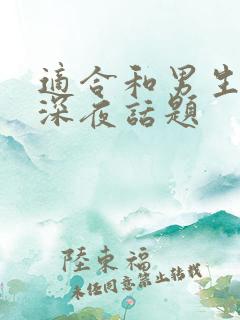 適合和男生
深夜話題
陸東福
未任同意禁止转载